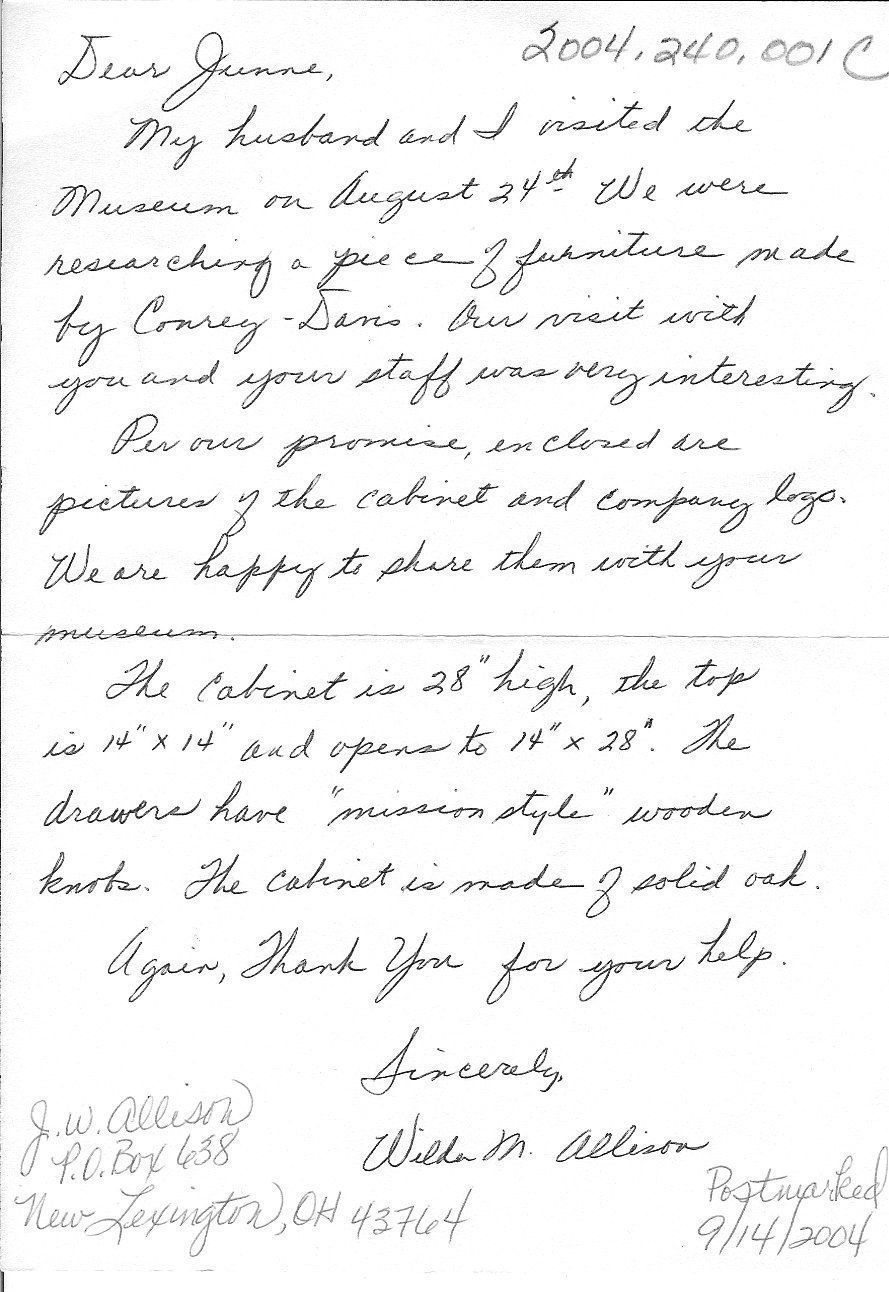 2004.240.001C
Dear Junne,
My husband and I visited the
Museum on August 24th We were
researching a piece of furniture made
by Conrey-Davis. Our visit with
you and your staff was very interesting.
Per our promise, enclosed are
pictures of the cabinet and company logo.
We are happy to share them with your
museum.
The cabinet is 28" high, the top
is 14" x 14" and opens to 14" x 28". The
drawers have "mission style" wooden
knobs. The cabinet is made of solid oak.
Again, Thank You for your help.
Sincerely,
Wilda M. Allison
J.W. Allison
P.O. Box 638
New Lexington, OH 43764
Postmarked
9/14/2004